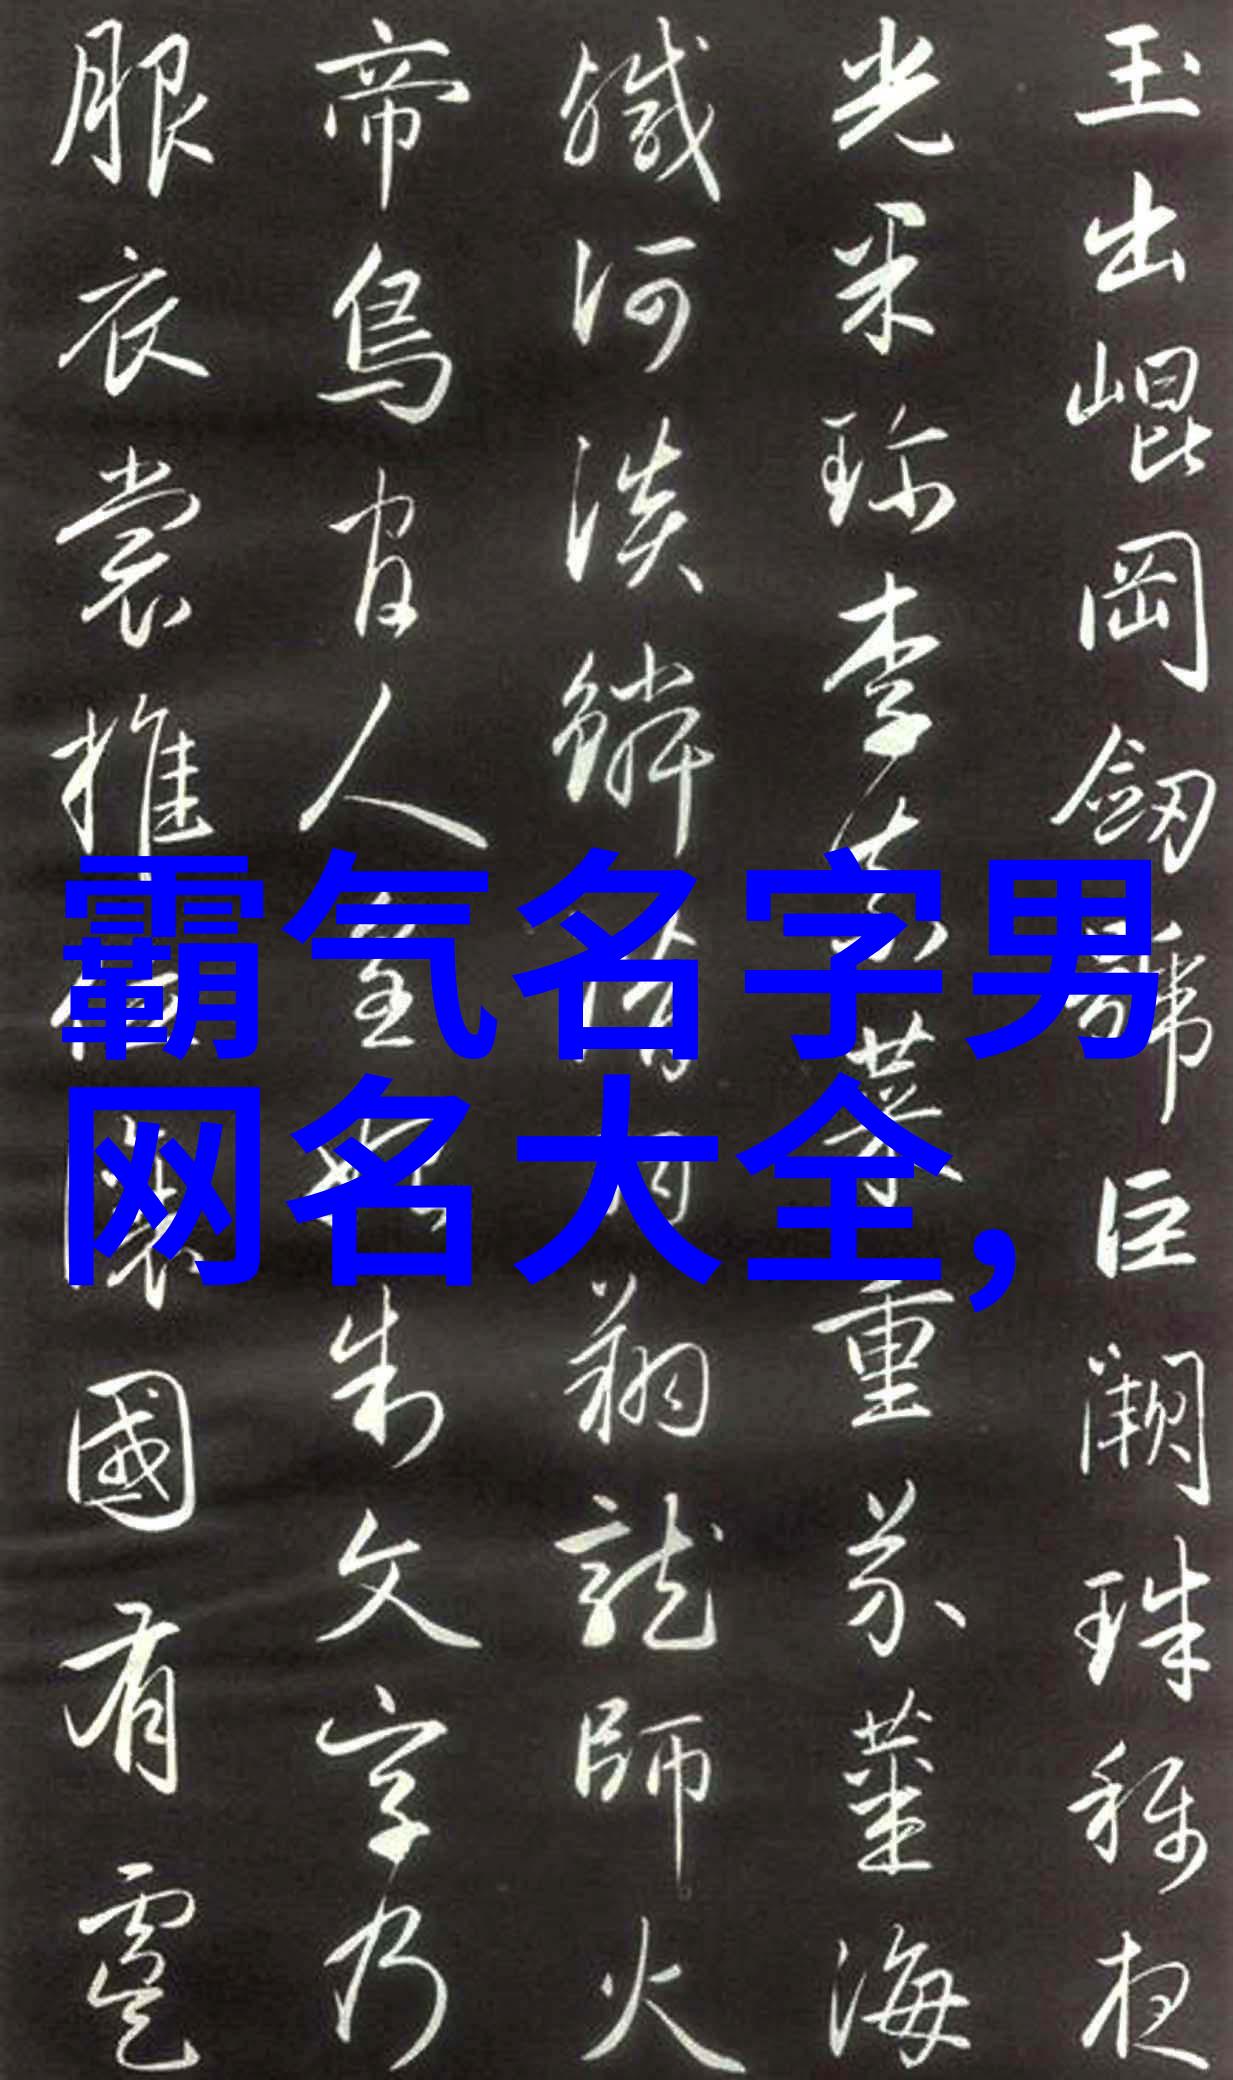 玉出崐岡劒號巨闕珠稱夜
光果珍李柰菜重芥薑海
鹹河淡鱗潛羽翔龍師火
帝鳥官人皇始制文字乃
服衣裳推位讓國有虞
霸气名字男
网名大全,